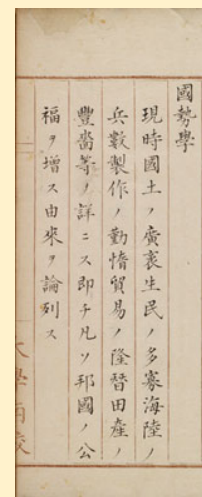 國勢學
現時國土ノ廣袤生民ノ多寡海陸ノ
兵數製作ノ勤惰貿易ノ隆替田產ノ
豐嗇等ヲ詳ニス即チ凡ソ邦國ノ公
福ヲ增ス由來ヲ論列ス
大學南校